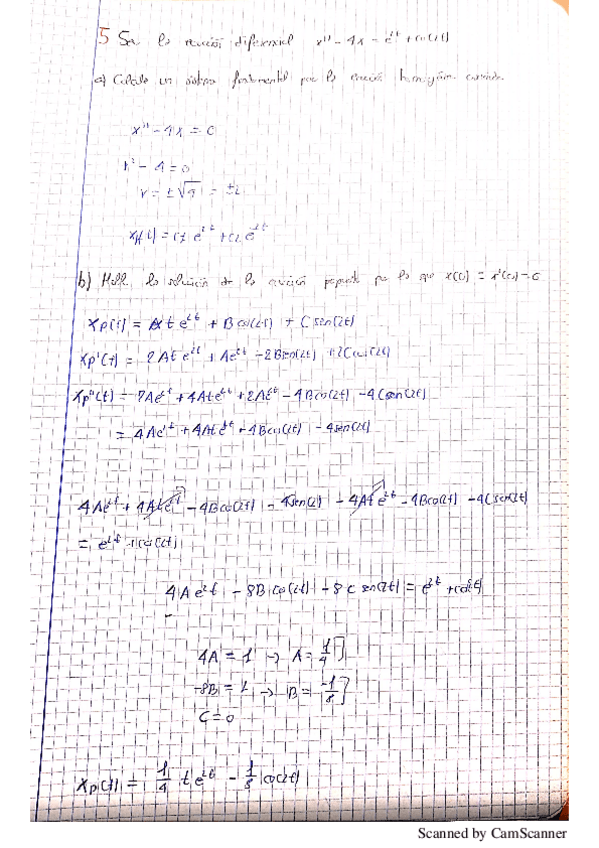 5 Sea la ecuación diferencial x'' - 4x = e^2t + cos(2t)
a) Calcula un sistema fundamental para la ecuación homogénea
x'' - 4x = 0
r² - 4 = 0
r = ±√4 = ±2
xh(t) = c1 e^2t + c2 e^-2t
b) Halla la solución de la ecuación para la que x(0) = x'(0) = 0
Xp(t) = A t e^2t + B cos(2t) + C sen(2t)
Xp'(t) = 2A t e^2t + A e^2t - 2B sen(2t) + 2C cos(2t)
Xp''(t) = 2A e^2t + 4A t e^2t + 2A e^2t - 4B cos(2t) - 4C sen(2t)
= 4A e^2t + 4A t e^2t - 4B cos(2t) - 4 sen(2t)
4A e^2t + 4A t e^2t - 4B cos(2t) - 4 sen(2t) - 4A t e^2t - 4B cos(2t) - 4C sen(2t)
= e^2t + cos(2t)
4A e^2t - 8B cos(2t) - 8C sen(2t) = e^2t + cos(2t)
4A = 1 → A = 1/4
-8B = 1 → B = -1/8
C = 0
Xp(t) = 1/4 t e^2t - 1/8 cos(2t)
Scanned by CamScanner